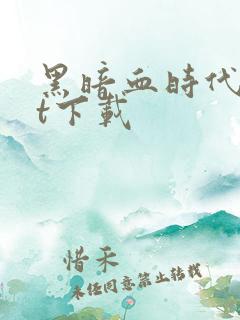 黑暗血時代
t下載
惜禾
未经同意禁止转载